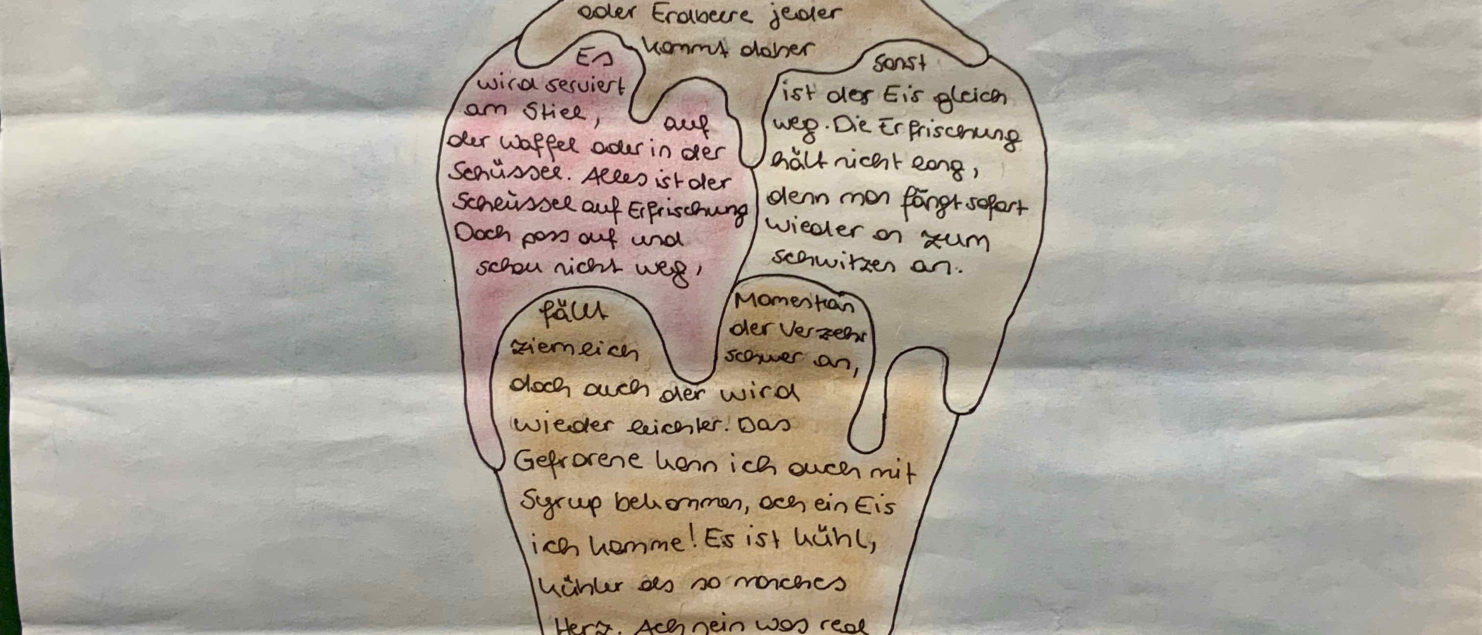 oder Erdbeere jeder
kommt daher
Es
wird serviert
am Stiel,
auf
der Waffel oder in der
Schüssel. Alles ist der
Schlüssel auf Erfrischung
Doch pass auf und
schau nicht weg,
sonst
ist das Eis gleich
weg. Die Erfrischung
hält nicht lang,
denn man fängt sofort
wieder an zum
schwitzen an.
Momentan
der Verzehr
schwer an,
fällt
ziemlich
doch auch der wird
wieder leichter. Das
Gefrorene kann ich auch mit
Syrup bekommen, ach ein Eis
ich komme! Es ist kühl,
kühler als so manches
Herz. Ach nein was red